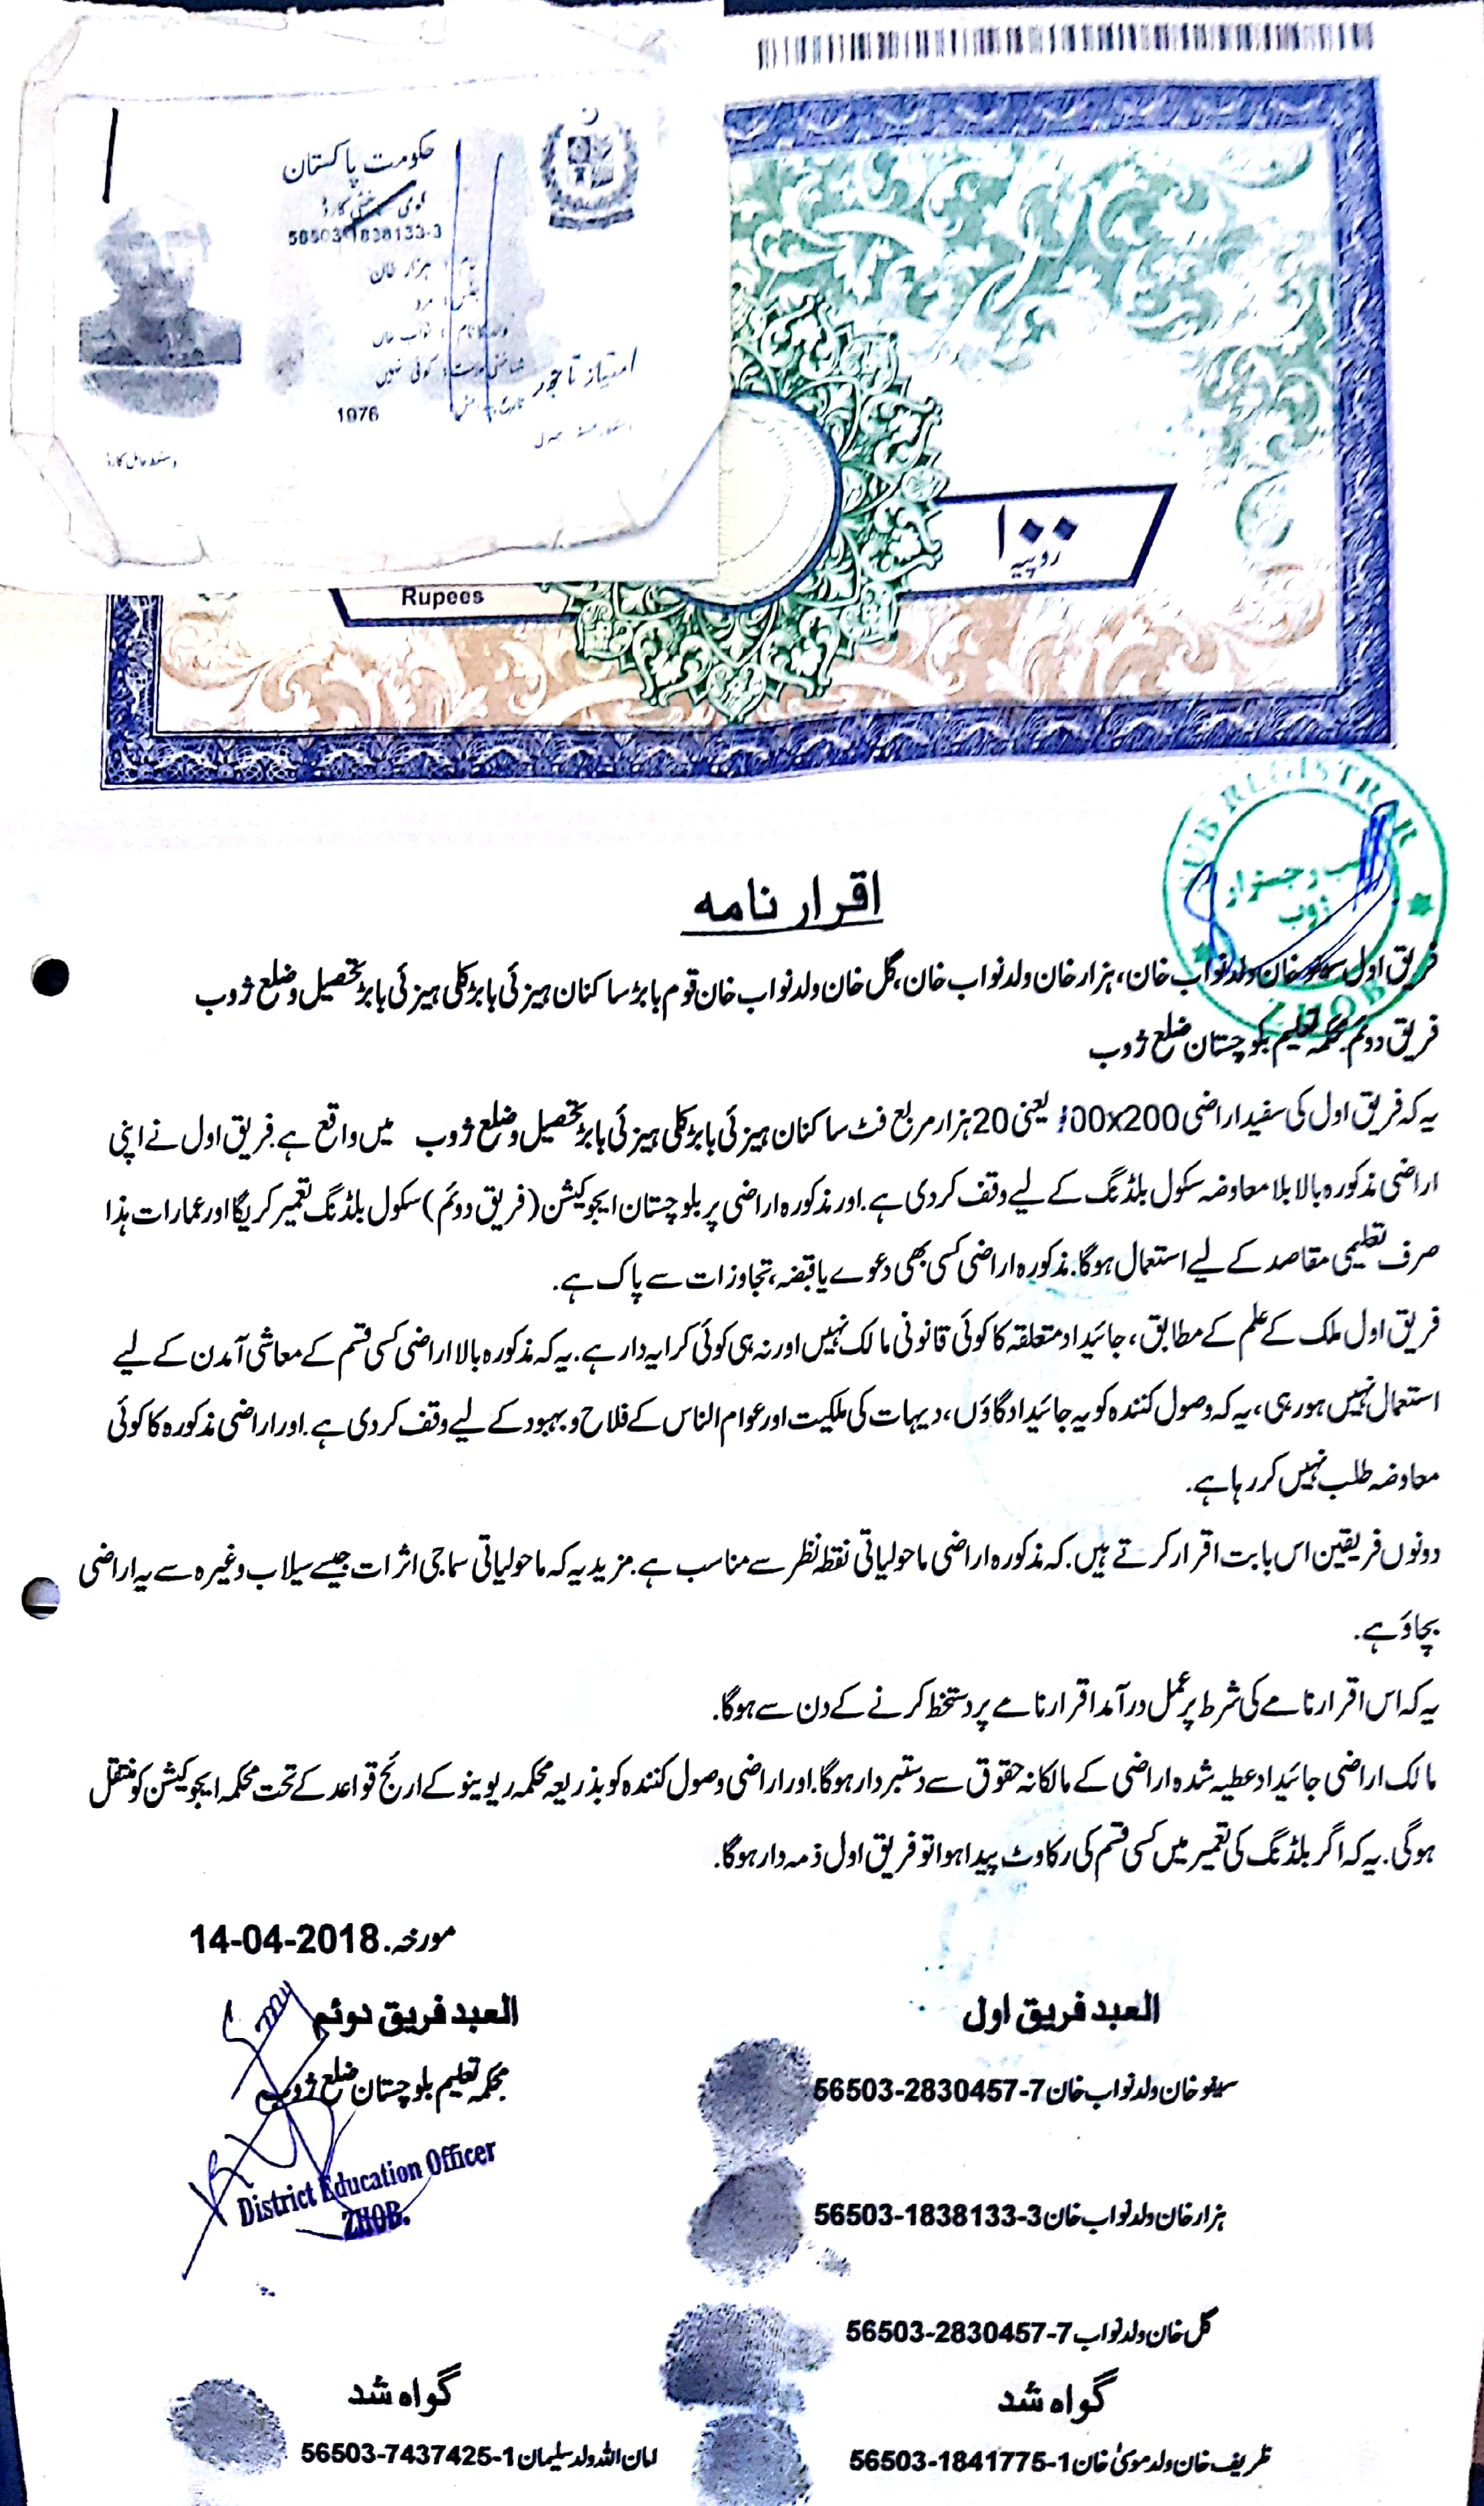 حکومت پاکستان
قومی شناختی کارڈ
56503-1838133-3
نام : ہزار خان
جنس : مرد
ولد کا نام : نواب خان
شناختی علامت : کوئی نہیں
1976
امتیاز تاجور
دستخط حامل کارڈ
۱۰۰
روپیہ
Rupees
SUB REGISTRAR
سب رجسٹرار
ژوب
ZHOB
اقرار نامہ
فریق اول خان ولد نواب خان، ہزار خان ولد نواب خان، گل خان ولد نواب خان قوم بابڑ ساکنان ہیزئی بابڑ کلی ہیزئی بابڑ تحصیل و ضلع ژوب
فریق دوئم محکمہ تعلیم بلوچستان ضلع ژوب
یہ کہ فریق اول کی سفید اراضی 100x200 یعنی 20 ہزار مربع فٹ ساکنان ہیزئی بابڑ کلی ہیزئی بابڑ تحصیل و ضلع ژوب میں واقع ہے. فریق اول نے اپنی
اراضی مذکورہ بالا بلا معاوضہ سکول بلڈنگ کے لیے وقف کر دی ہے. اور مذکورہ اراضی پر بلوچستان ایجوکیشن (فریق دوئم) سکول بلڈنگ تعمیر کریگا اور عمارات ہذا
صرف تعلیمی مقاصد کے لیے استعمال ہوگا. مذکورہ اراضی کسی بھی دعوے یا قبضہ، تجاوزات سے پاک ہے.
فریق اول ملک کے علم کے مطابق، جائیداد متعلقہ کا کوئی قانونی مالک نہیں اور نہ ہی کوئی کرایہ دار ہے. یہ کہ مذکورہ بالا اراضی کسی قسم کے معاشی آمدن کے لیے
استعمال نہیں ہو رہی، یہ کہ وصول کنندہ کو یہ جائیداد گاؤں، دیہات کی ملکیت اور عوام الناس کے فلاح و بہبود کے لیے وقف کر دی ہے. اور اراضی مذکورہ کا کوئی
معاوضہ طلب نہیں کر رہا ہے.
دونوں فریقین اس بابت اقرار کرتے ہیں. کہ مذکورہ اراضی ماحولیاتی نقطہ نظر سے مناسب ہے. مزید یہ کہ ماحولیاتی سماجی اثرات جیسے سیلاب وغیرہ سے یہ اراضی
بچاؤ ہے.
یہ کہ اس اقرار نامے کی شرط پر عمل درآمد اقرار نامے پر دستخط کرنے کے دن سے ہوگا.
مالک اراضی جائیداد عطیہ شدہ اراضی کے مالکانہ حقوق سے دستبردار ہوگا. اور اراضی وصول کنندہ کو بذریعہ محکمہ ریوینو کے ارئج قواعد کے تحت محکمہ ایجوکیشن کو منتقل
ہوگی. یہ کہ اگر بلڈنگ کی تعمیر میں کسی قسم کی رکاوٹ پیدا ہوا تو فریق اول ذمہ دار ہوگا.
مورخہ. 14-04-2018
العبد فریق اول
العبد فریق دوئم
محکمہ تعلیم بلوچستان ضلع ژوب
District Education Officer
ZHOB.
خان ولد نواب خان 56503-2830457-7
ہزار خان ولد نواب خان 56503-1838133-3
گل خان ولد نواب 56503-2830457-7
گواہ شد
گواہ شد
ظریف خان ولد موسیٰ خان 56503-1841775-1
امان اللہ ولد سلیمان 56503-7437425-1